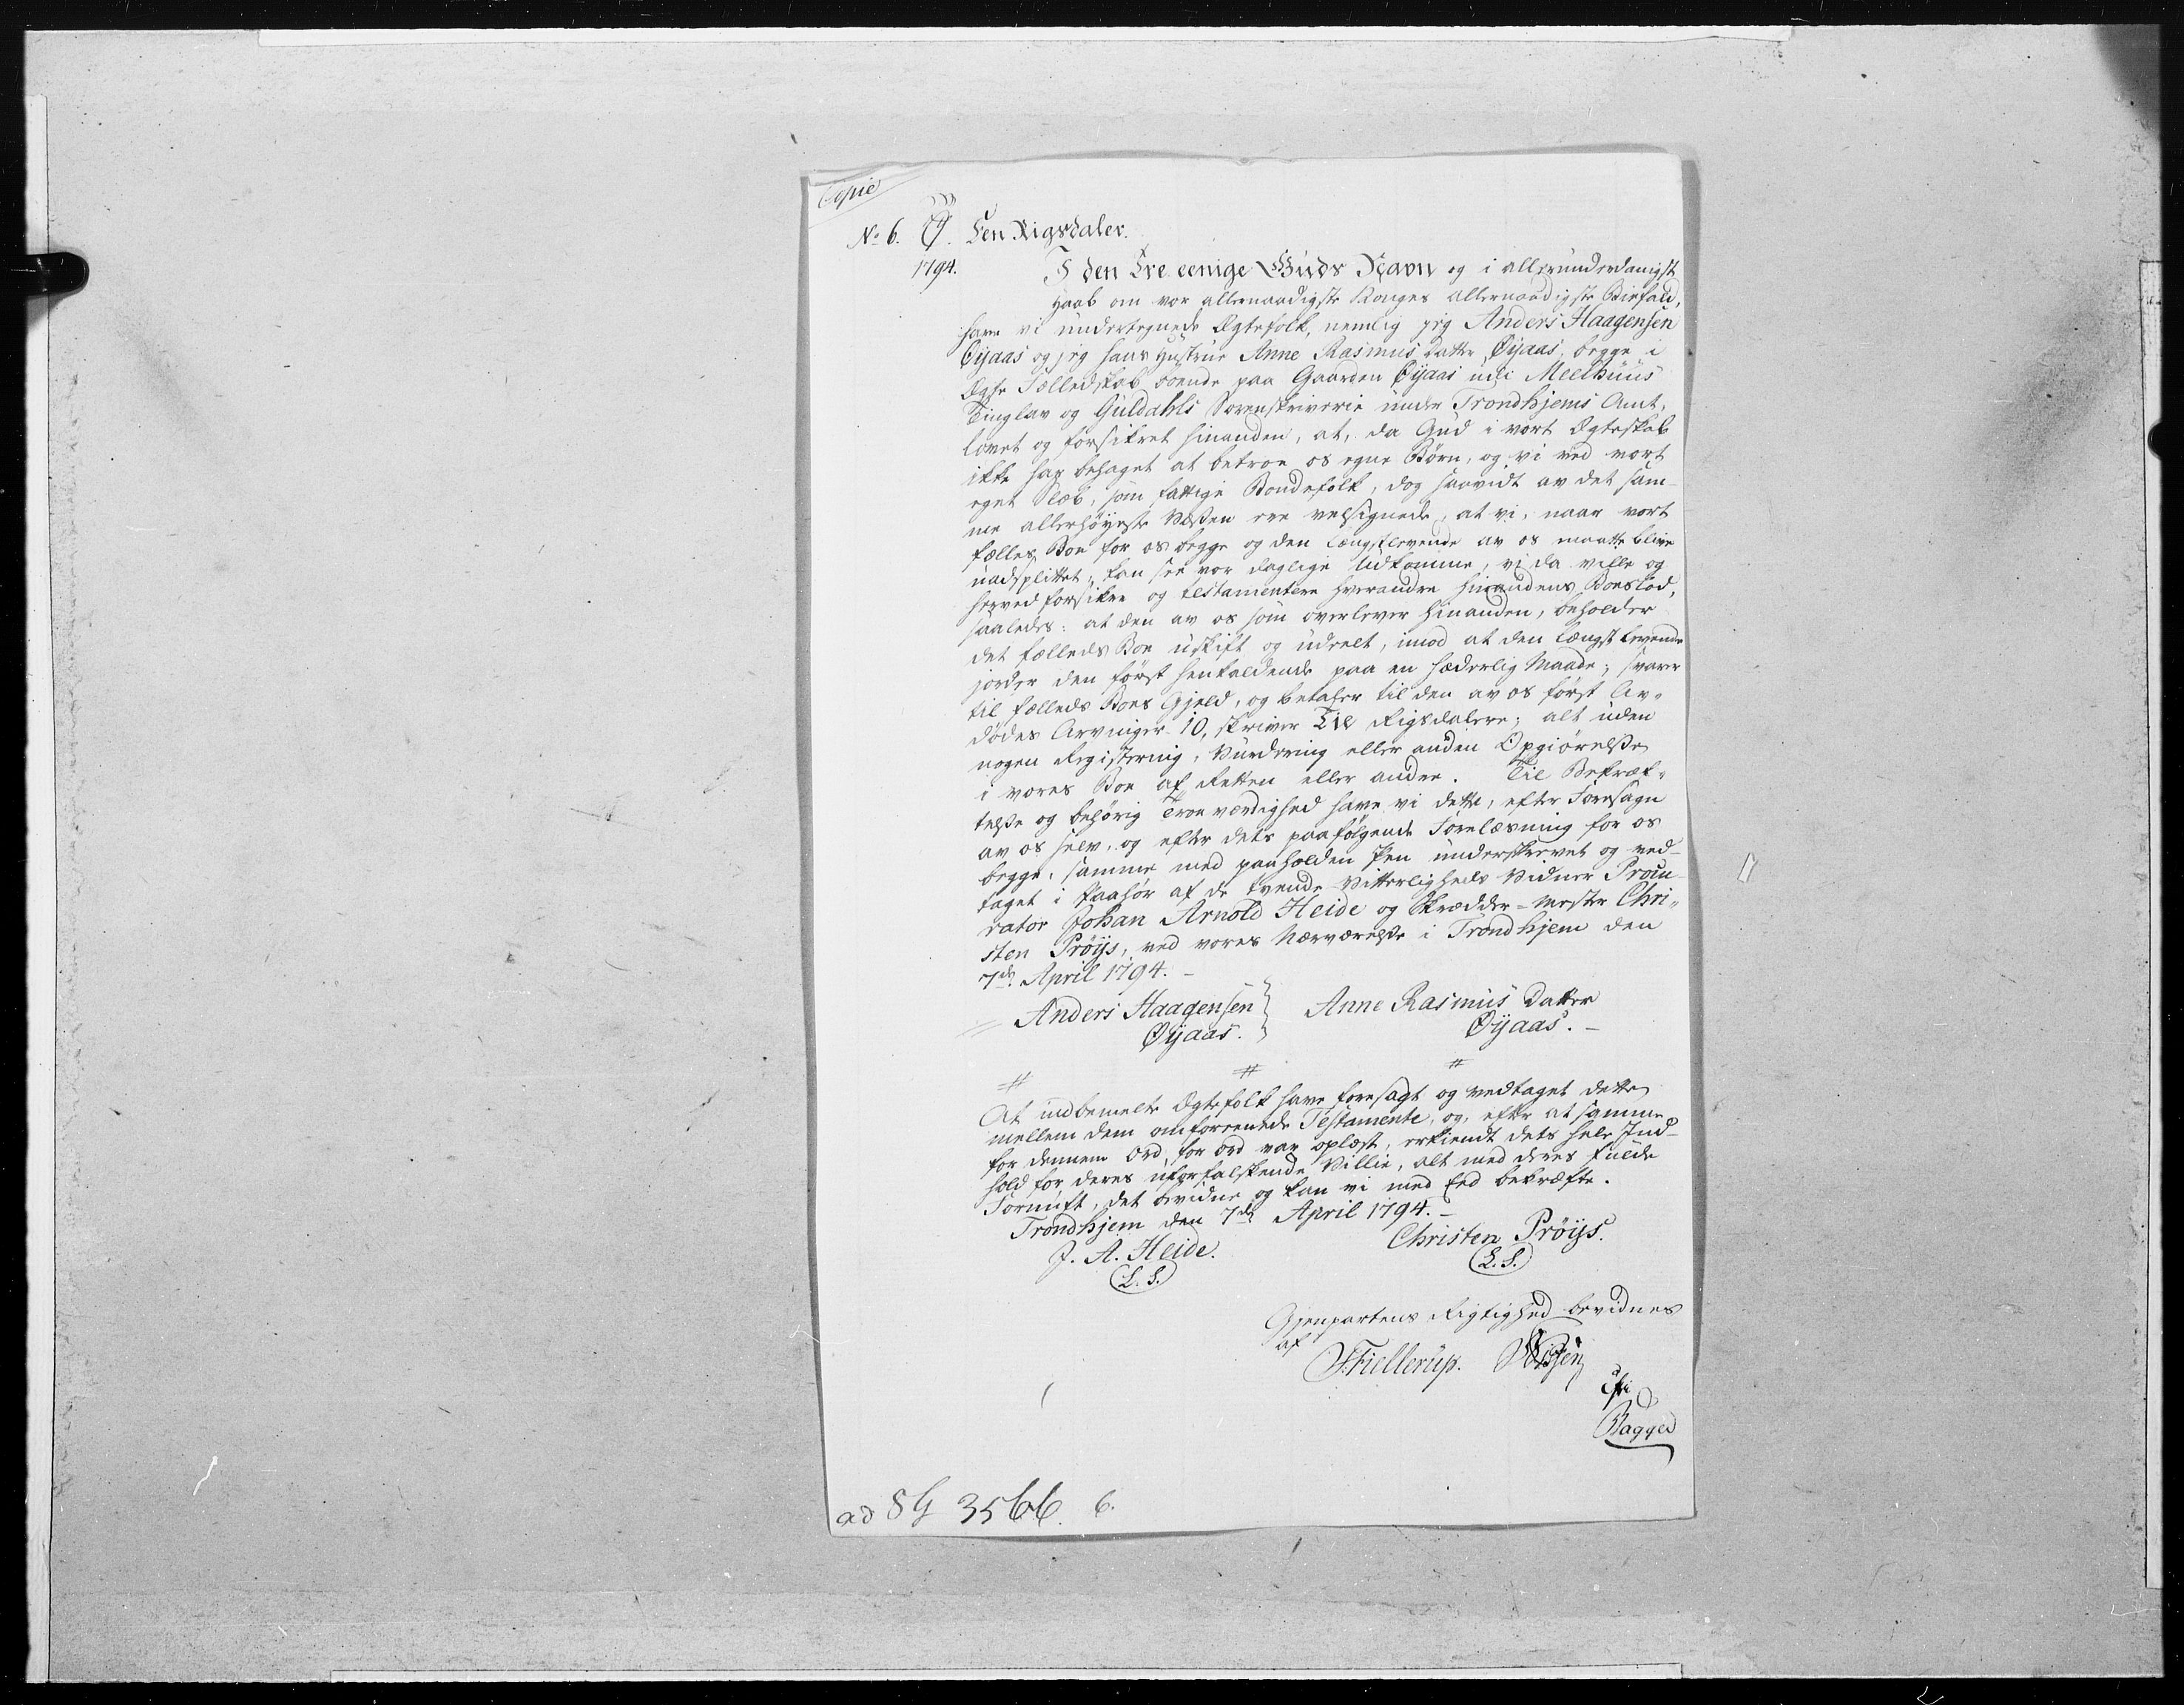 Copie
No 6. Een Rigsdaler.
1794. I den Tre eenige Guds Navn og i allerunderdanigst
Haab om vor allernaadigste Konges allernaadigste Biefald,
have vi undertegnede Ægtefolk, nemlig jeg Anders Haagensen
Øÿaas og jeg hans Hustrue Anne Rasmus Datter Øÿaas, begge i
Ægte Fælledskab boende paa Gaarden Øÿaas udi Meelhuus
Tinglav og Guldahls Sorenskriverie under Trondhjems Amt,
lovet og forsikret hinanden, at, da Gud i vort Ægteskab
ikke har behaget at betroe os egne Børn, og vi ved vort
eget Slæb, som fattige Bondefolk, dog saavidt av det sam-
me allerhøyeste Væsen ere velsignede, at vi, naar vort
fælles Boe for os begge og den længstlevende av os maatte blive
uadsplittet, kan see vor daglige Udkomme, vi da ville og
herved forsikre og testamentere hverandre hinandens Boeslod,
saaledes: at den av os som overlever hinanden, beholder
det fælleds Boe uskift og udeelt, imod at den længst levende
jorder den først henfaldende paa en hæderlig Maade; svarer
til fælleds Boes Gjeld, og betaler til den av os først Av-
dødes Arvinger 10, skriver Tie Rigsdalere; alt uden
nogen Registering, Vurdering eller anden Opgiørelse
i vores Boe af Retten eller andre. Til Bekræf-
telse og behørig Troeværdighed have vi dette, efter Foresagn
av os selv, og efter dets paafølgende Forelæsning for os
begge, samme med paaholden Pen underskrevet og ved-
taget i Paahør af de tvende Vitterligheds Vidner Procu-
rator Johan Arnold Heide og Skrædder-Mester Chri-
sten Prøÿs, ved vores Nærværelse i Trondhjem den
7de April 1794.-
Anders Haagensen Anne Rasmus Datter
Øÿaas. Øÿaas.-
At indbemelte Ægtefolk have foresagt og vedtaget dette
mellem dem omforeenede Testamente, og, efter at samme
for dennem Ord for Ord var oplæst, erkiendt dets hele Ind-
hold for deres uforfalskende Villie, alt med deres fulde
Fornuft, det bevidne og kan vi med Eed bekræfte.
Trondhjem den 7de April 1794.-
J. A. Heide. Christen Prøÿs.
(L. S.) (L. S.)
Gjenpartens Rigtighed bevidnes
af
Fiellerup.
Bagged
ad 3566. 6.